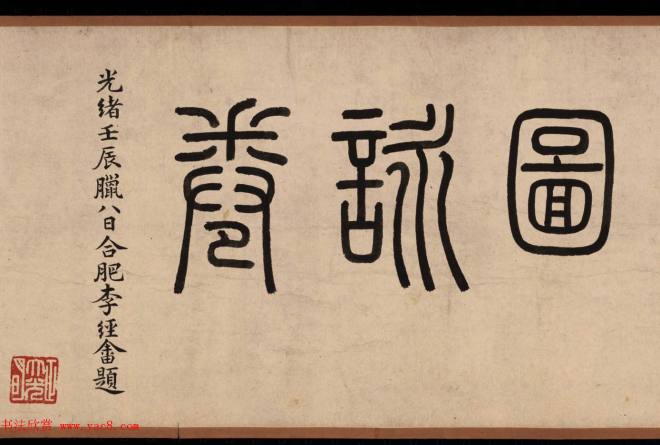 圖詠卷
光緒壬辰臘八日合肥李經畬題
书法欣赏 www.yac8.com